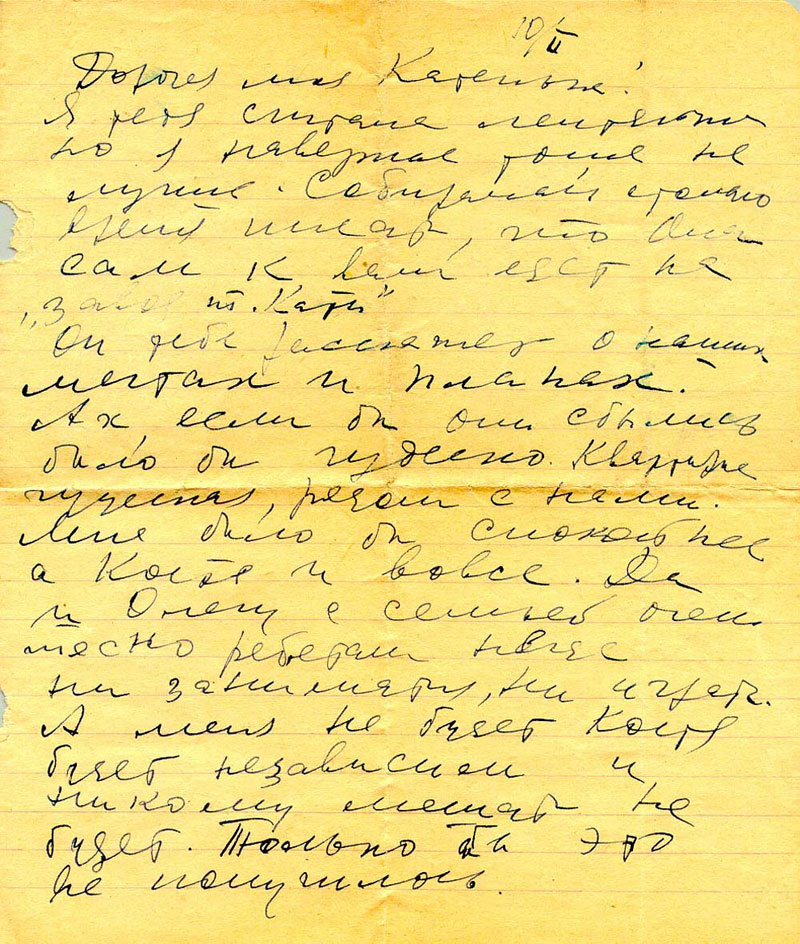 10/II
Дорогая моя Катенька!
Я тебя считала лентяйкой
но я наверное тоже не
лучше. Собиралась столько
времени писать, что Олег
сам к вам едет на
„завод т. Кати“
Он тебе расскажет о наших
мечтах и планах.
Ах если бы они сбылись
было бы чудесно. Квартира
чудесная, рядом с нами.
Мне было бы спокойнее
а Косте и вовсе. Да
и Олегу с семьей очень
тесно ребятам негде
ни заниматься, ни играть.
А меня не будет Костя
будет независим и
никому мешать не
будет. Только бы это
не получилось.